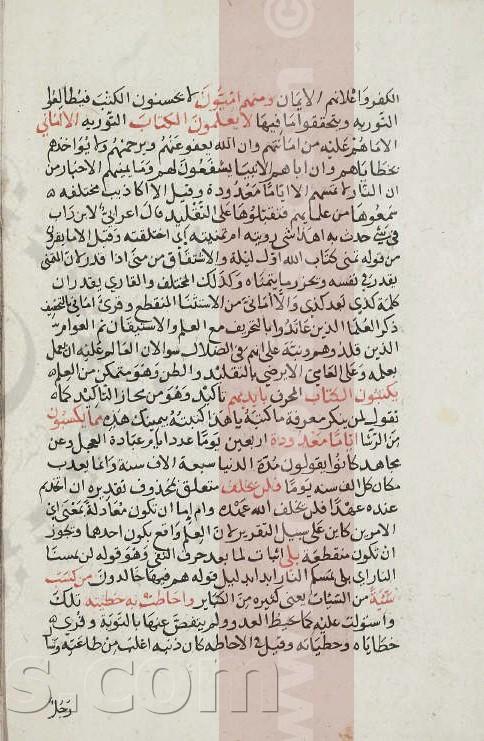 الكفر واعلانهم الايمان ومنهم اميون لا يحسنون الكتب فيطالعوا
التوريه ويتحققوا ما فيها لا يعلمون الكتاب التوريه الا اماني
الا ما هم عليه من امانيهم وان الله يعفو عنهم ويرحمهم ولا يواخذهم
بخطاياهم وان اباهم الانبيا يشفعون لهم وما يمنيهم الاحبار من
ان النار لا تمسهم الا اياما معدودة وقيل الا اكاذيب مختلفه
سمعوها من علمايهم فتقبلوها على التقليد قال اعرابي لابن داب
في شي حدث به اهذا شي رويته ام تمنيته اي اختلقته وقيل الا ما يقرون
من قوله تمنى كتاب الله اول ليلة والاشتقاق من منى اذا قدر لان المتمني
يقدر في نفسه ويحزر ما يتمناه وكذلك المختلق والقاري يقدر ان
كلمة كذى بعد كذى والا اماني من الاستثنا المنقطع وقرئ اماني بالتخفيف
ذكر العلما الذين عاندوا بالتحريف مع العلم والاستيقان ثم العوام
الذين قلدوهم ونبه على انهم في الضلال سوا لان العالم عليه ان يعمل
بعلمه وعلى العامي الا يرضى بالتقليد والظن وهو متمكن من العلم
يكتبون الكتاب المحرف بايديهم تاكيد وهو من مجاز التاكيد كما
تقول لمن ينكر معرفة ما كتبه يا هذا كتبته بيمينك هذه مما يكسبون
من الرشا اياما معدودة اربعين يوما عدد ايام عبادة العجل وعن
مجاهد كانوا يقولون مدة الدنيا سبعة الاف سنة وانما نعذب
مكان كل الف سنة يوما فلن يخلف متعلق بمحذوف تقديره ان اتخذتم
عنده عهدا فلن يخلف الله عهده وام اما ان تكون معادلة بمعنى اي
الامرين كاين على سبيل التقرير لان العلم واقع بكون احدها ويجوز
ان تكون منقطعة بلى اثبات لما بعد حرف النفي وهو قوله لن تمسنا
النار اي بلى تمسكم النار ابدا بدليل قوله هم فيها خالدون من كسب
سيئة من السيات يعني كبيرة من الكباير واحاطت به خطيئته تلك
واستولت عليه كما يحيط العدو ولم يتفص عنها بالتوبة وقرئ
خطاياه وخطيئاته وقيل في الاحاطه كان ذنبه اغلب من طاعته وسال
رجل
s.com